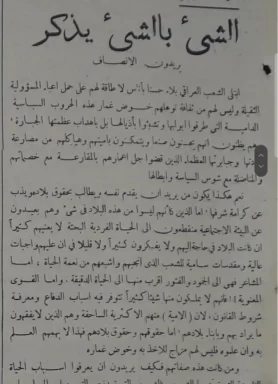 الشيء بالشيء يذكر
يريدون الانصاف
ابتلي الشعب العراقي بلا حسنا بأناس لا طاقة لهم على حمل اعباء المسؤولية
الثقيلة وليس لهم من ثقافة توهلهم خوض غمار هذه الحروب السياسية
الدامية التي طرقوا ابوابها وتشبثوا بأذيالها بل باهداب عظمتها الجبارة،
يظنون انهم يحسنون صنعا ويتمكنون من مصارعة
وجبابرتها العظماء الذين قضوا جل اعمارهم بالمقارعة مع خصمائهم
والمناضلة مع شوس السياسة وابطالها
نعم هكذا يكون من يريد ان يقدم نفسه ويطالب بحقوق بلاده ويذب
عن كرامة شرفها، اما الذين ليسوا من هذه البلاد في شيء وهم بعيدون
عن البيئة الاجتماعية منقطعون الى الحياة الفردية البحتة لا يعنيهم كثيراً
ان كانت البلاد في حاجة اليهم ولا يفكرون كثيراً أو قليلا في ان عليهم واجبات
عالية ومقدسات سامية للشعب الذي انجبهم واشبعهم من نعمة الحياة، اما
المشاعر فهي الى الجمود والفتور اقرب منها الى الحياة الدقيقة، واما القوى
المعنوية فانهم لا يملكون منها شيئاً كثيراً تتوفر فيه اسباب الدفاع ومعرفة
شروط القانون، لان (الامية) منهم الاكثرية الساحقة وهم الذين لا يفقهون
ما يراد بهم وبأبناء بلادهم اما حقوقهم وحقوق بلادهم فهذا لا يهمهم العلم
به وان علموه فليس لهم مزاج للاخذ به وخوض غماره
ومن كانت هذه صفاتهم فكيف يريدون ان يعرفوا اسباب الحياة